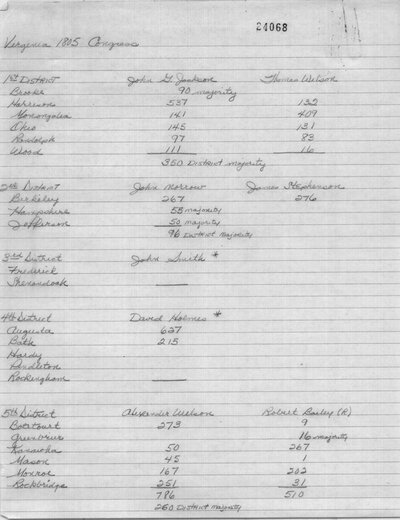 24068
Virginia 1805 Congress
1st District John G. Jackson Thomas Wilson
Brooke 90 majority
Harrison 537 132
Monongalia 141 409
Ohio 145 131
Randolph 97 83
Wood 111 16
350 District majority
2nd District John Morrow James Stephenson
Berkeley 267 276
Hampshire 55 majority
Jefferson 50 majority
96 District majority
3rd District John Smith *
Frederick
Shenandoah
4th District David Holmes *
Augusta 627
Bath 215
Hardy
Pendleton
Rockingham
5th District Alexander Wilson Robert Bailey (R)
Botetourt 273 9
Greenbrier 16 majority
Kanawha 50 267
Mason 45 1
Monroe 167 202
Rockbridge 251 31
786 510
260 District majority